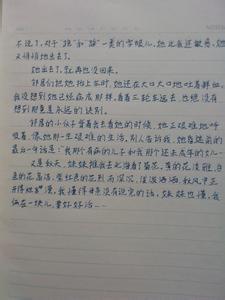 不说了,对于"跑"和"踩"一类的字眼儿,她比我还敏感。她
又悄悄地出去了。
她出去了,就再也没回来。
邻居们把她抬上车时,她还在大口大口地吐着鲜血。
我没想到她已经病成那样。看着三轮车远去,也绝没有
想到那竟是永远的诀别。
邻居的小伙子背着我去看她的时候,她正艰难地呼
吸着,像她那一生艰难的生活。别人告诉我,她昏迷前的
最后一句话是:"我那个有病的儿子和我那个还未成年的女儿…
又是秋天,妹妹推我去北海看了菊花。黄的花淡雅、白
色的花高洁、紫红色的花热烈而深沉,泼泼洒洒,秋风中正
开得烂漫。我懂得母亲没有说完的话,妹妹也懂。我
俩在一块儿,要好好活…